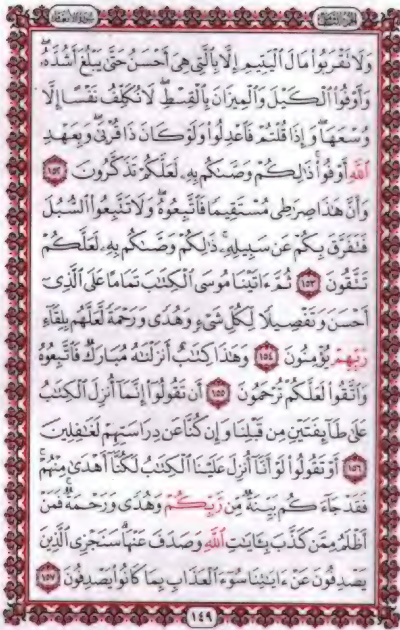 وَلَا تَقْرَبُوا۟ مَالَ ٱلْيَتِيمِ إِلَّا بِٱلَّتِى هِىَ أَحْسَنُ حَتَّىٰ يَبْلُغَ أَشُدَّهُۥ ۖ
وَأَوْفُوا۟ ٱلْكَيْلَ وَٱلْمِيزَانَ بِٱلْقِسْطِ ۖ لَا نُكَلِّفُ نَفْسًا إِلَّا
وُسْعَهَا ۖ وَإِذَا قُلْتُمْ فَٱعْدِلُوا۟ وَلَوْ كَانَ ذَا قُرْبَىٰ ۖ وَبِعَهْدِ
ٱللَّهِ أَوْفُوا۟ ۚ ذَٰلِكُمْ وَصَّىٰكُم بِهِۦ لَعَلَّكُمْ تَذَكَّرُونَ ١٥٢
وَأَنَّ هَٰذَا صِرَٰطِى مُسْتَقِيمًا فَٱتَّبِعُوهُ ۖ وَلَا تَتَّبِعُوا۟ ٱلسُّبُلَ
فَتَفَرَّقَ بِكُمْ عَن سَبِيلِهِۦ ۚ ذَٰلِكُمْ وَصَّىٰكُم بِهِۦ لَعَلَّكُمْ
تَتَّقُونَ ١٥٣ ثُمَّ ءَاتَيْنَا مُوسَى ٱلْكِتَٰبَ تَمَامًا عَلَى ٱلَّذِىٓ
أَحْسَنَ وَتَفْصِيلًا لِّكُلِّ شَىْءٍ وَهُدًى وَرَحْمَةً لَّعَلَّهُم بِلِقَآءِ
رَبِّهِمْ يُؤْمِنُونَ ١٥٤ وَهَٰذَا كِتَٰبٌ أَنزَلْنَٰهُ مُبَارَكٌ فَٱتَّبِعُوهُ
وَٱتَّقُوا۟ لَعَلَّكُمْ تُرْحَمُونَ ١٥٥ أَن تَقُولُوٓا۟ إِنَّمَآ أُنزِلَ ٱلْكِتَٰبُ
عَلَىٰ طَآئِفَتَيْنِ مِن قَبْلِنَا وَإِن كُنَّا عَن دِرَاسَتِهِمْ لَغَٰفِلِينَ
١٥٦ أَوْ تَقُولُوا۟ لَوْ أَنَّآ أُنزِلَ عَلَيْنَا ٱلْكِتَٰبُ لَكُنَّآ أَهْدَىٰ مِنْهُمْ ۚ
فَقَدْ جَآءَكُم بَيِّنَةٌ مِّن رَّبِّكُمْ وَهُدًى وَرَحْمَةٌ ۚ فَمَنْ
أَظْلَمُ مِمَّن كَذَّبَ بِـَٔايَٰتِ ٱللَّهِ وَصَدَفَ عَنْهَا ۗ سَنَجْزِى ٱلَّذِينَ
يَصْدِفُونَ عَنْ ءَايَٰتِنَا سُوٓءَ ٱلْعَذَابِ بِمَا كَانُوا۟ يَصْدِفُونَ ١٥٧
١٤٩